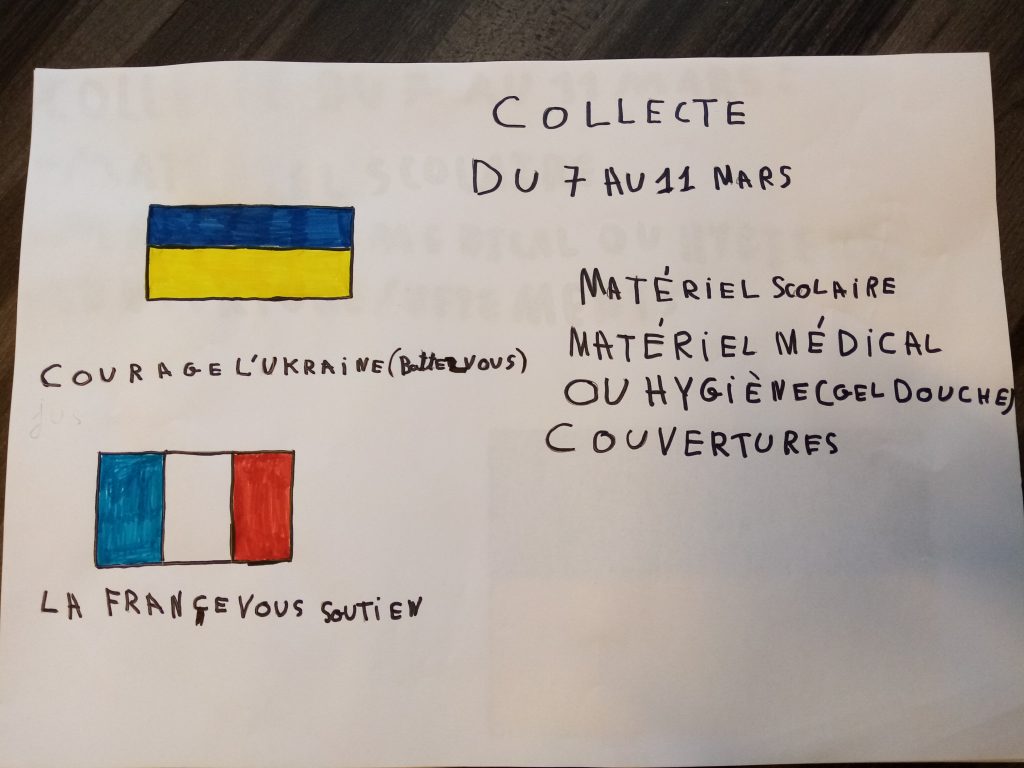 COLLECTE
DU 7 AU 11 MARS
MATÉRIEL SCOLAIRE
MATÉRIEL MÉDICAL
OU HYGIÈNE (GEL DOUCHE)
COUVERTURES
COURAGE L'UKRAINE (BATTEZ VOUS)
LA FRANCE VOUS SOUTIEN